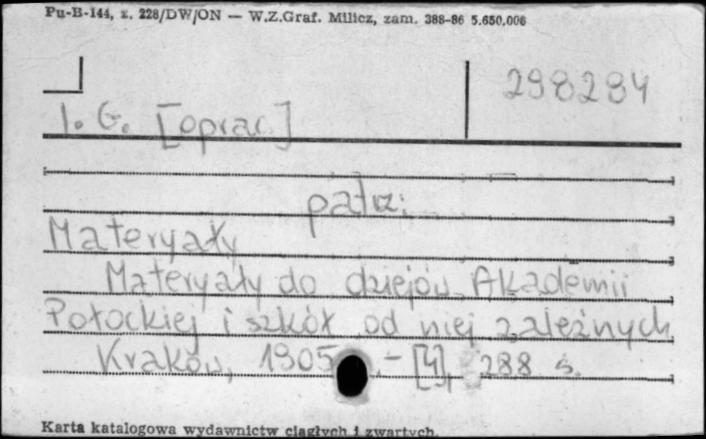 Pu-B-144, z. 228/DW/ON — W.Z.Graf. Milicz, zam. 388-86 5.650.006
298284
I. G. [oprac.]
patrz:
Materyały
Materyały do dziejów Akademii
Połockiej i szkół od niej zależnych
Kraków, 1905 .- [4], 288 s.
Karta katalogowa wydawnictw ciągłych i zwartych.